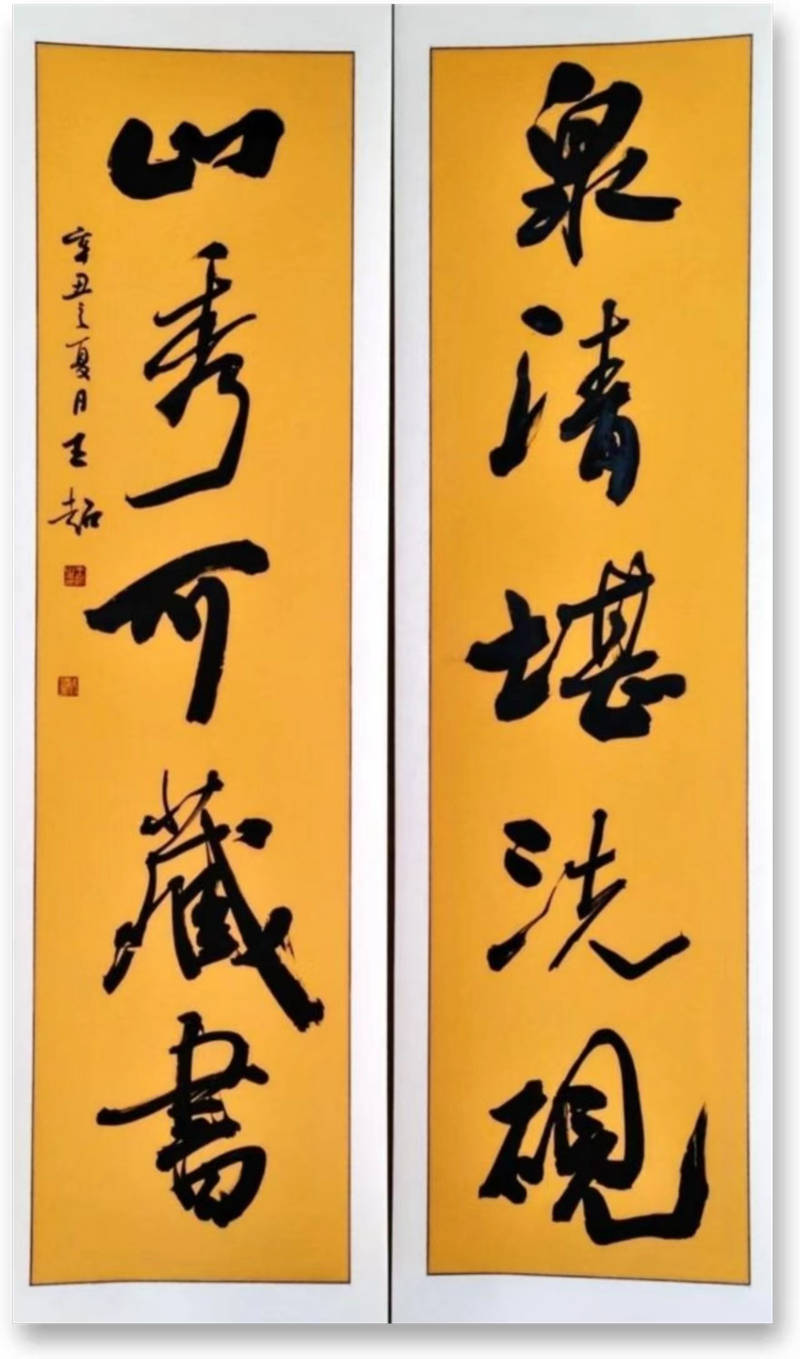 泉清堪洗硯
山秀可藏書
辛丑之夏月王超